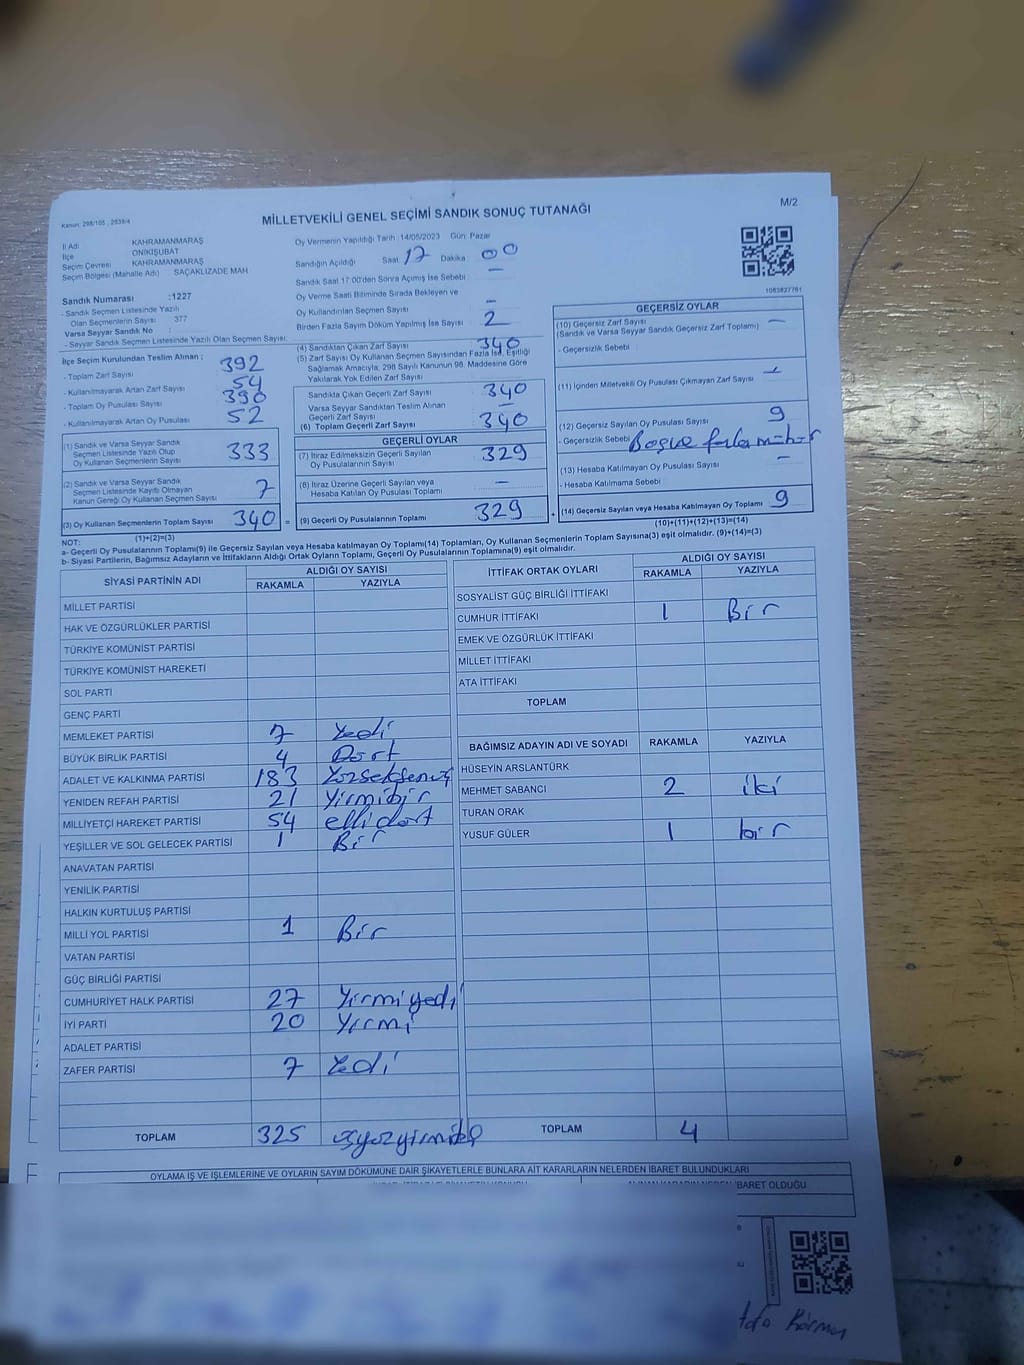 Kanun: 298/105 , 2839/4
MİLLETVEKİLİ GENEL SEÇİMİ SANDIK SONUÇ TUTANAĞI
M/2
İl Adı KAHRAMANMARAŞ
İlçe ONİKİŞUBAT
Seçim Çevresi KAHRAMANMARAŞ
Seçim Bölgesi (Mahalle Adı) SAÇAKLIZADE MAH
Sandık Numarası :1227
- Sandık Seçmen Listesinde Yazılı
Olan Seçmenlerin Sayısı 377
Varsa Seyyar Sandık No :
- Seyyar Sandık Seçmen Listesinde Yazılı Olan Seçmen Sayısı:
Oy Vermenin Yapıldığı Tarih :14/05/2023 Gün: Pazar
Sandığın Açıldığı Saat 17 Dakika 00
Sandık Saat 17.00'den Sonra Açımış İse Sebebi : —
Oy Verme Saati Bitiminde Sırada Bekleyen ve
Oy Kullandırılan Seçmen Sayısı —
Birden Fazla Sayım Döküm Yapılmış İse Sayısı 2
1083827761
İlçe Seçim Kurulundan Teslim Alınan ;
- Toplam Zarf Sayısı 392
- Kullanılmayarak Artan Zarf Sayısı 54
- Toplam Oy Pusulası Sayısı 390
- Kullanılmayarak Artan Oy Pusulası 52
(1) Sandık ve Varsa Seyyar Sandık
Seçmen Listesinde Yazılı Olup
Oy Kullanan Seçmenlerin Sayısı 333
(2) Sandık ve Varsa Seyyar Sandık
Seçmen Listesinde Kayıtlı Olmayan
Kanun Gereği Oy Kullanan Seçmen Sayısı 7
(3) Oy Kullanan Seçmenlerin Toplam Sayısı 340 =
(1)+(2)=(3)
(4) Sandıktan Çıkan Zarf Sayısı 340
(5) Zarf Sayısı Oy Kullanan Seçmen Sayısından Fazla İse, Eşitliği
Sağlamak Amacıyla, 298 Sayılı Kanunun 98. Maddesine Göre
Yakılarak Yok Edilen Zarf Sayısı
Sandıkta Çıkan Geçerli Zarf Sayısı 340
Varsa Seyyar Sandıktan Teslim Alınan
Geçerli Zarf Sayısı —
(6) Toplam Geçerli Zarf Sayısı 340
GEÇERLİ OYLAR
(7) İtiraz Edilmeksizin Geçerli Sayılan
Oy Pusulalarının Sayısı 329
(8) İtiraz Üzerine Geçerli Sayılan veya
Hesaba Katılan Oy Pusulası Toplamı —
(9) Geçerli Oy Pusulalarının Toplamı 329 +
GEÇERSİZ OYLAR
(10) Geçersiz Zarf Sayısı —
(Sandık ve Varsa Seyyar Sandık Geçersiz Zarf Toplamı)
- Geçersizlik Sebebi :
(11) İçinden Milletvekili Oy Pusulası Çıkmayan Zarf Sayısı
(12) Geçersiz Sayılan Oy Pusulası Sayısı 9
- Geçersizlik Sebebi Boş ve fazla mühür
(13) Hesaba Katılmayan Oy Pusulası Sayısı —
- Hesaba Katılmama Sebebi :
(14) Geçersiz Sayılan veya Hesaba Katılmayan Oy Toplamı 9
(10)+(11)+(12)+(13)=(14)
NOT:
a- Geçerli Oy Pusulalarının Toplamı(9) ile Geçersiz Sayılan veya Hesaba katılmayan Oy Toplamı(14) Toplamları, Oy Kullanan Seçmenlerin Toplam Sayısına(3) eşit olmalıdır. (9)+(14)=(3)
b- Siyasi Partilerin, Bağımsız Adayların ve İttifakların Aldığı Ortak Oyların Toplamı, Geçerli Oy Pusulalarının Toplamına(9) eşit olmalıdır.
SİYASİ PARTİNİN ADI ALDIĞI OY SAYISI
RAKAMLA YAZIYLA
MİLLET PARTİSİ
HAK VE ÖZGÜRLÜKLER PARTİSİ
TÜRKİYE KOMÜNİST PARTİSİ
TÜRKİYE KOMÜNİST HAREKETİ
SOL PARTİ
GENÇ PARTİ
MEMLEKET PARTİSİ 7 Yedi
BÜYÜK BİRLİK PARTİSİ 4 Dört
ADALET VE KALKINMA PARTİSİ 183 Yüzseksenüç
YENİDEN REFAH PARTİSİ 21 Yirmibir
MİLLİYETÇİ HAREKET PARTİSİ 54 ellidört
YEŞİLLER VE SOL GELECEK PARTİSİ 1 Bir
ANAVATAN PARTİSİ
YENİLİK PARTİSİ
HALKIN KURTULUŞ PARTİSİ
MİLLİ YOL PARTİSİ 1 Bir
VATAN PARTİSİ
GÜÇ BİRLİĞİ PARTİSİ
CUMHURİYET HALK PARTİSİ 27 Yirmiyedi
İYİ PARTİ 20 Yirmi
ADALET PARTİSİ
ZAFER PARTİSİ 7 Yedi
TOPLAM 325 üçyüzyirmibeş
İTTİFAK ORTAK OYLARI ALDIĞI OY SAYISI
RAKAMLA YAZIYLA
SOSYALİST GÜÇ BİRLİĞİ İTTİFAKI
CUMHUR İTTİFAKI 1 Bir
EMEK VE ÖZGÜRLÜK İTTİFAKI
MİLLET İTTİFAKI
ATA İTTİFAKI
TOPLAM
BAĞIMSIZ ADAYIN ADI VE SOYADI RAKAMLA YAZIYLA
HÜSEYİN ARSLANTÜRK
MEHMET SABANCI 2 iki
TURAN ORAK
YUSUF GÜLER 1 bir
TOPLAM 4
OYLAMA İŞ VE İŞLEMLERİNE VE OYLARIN SAYIM DÖKÜMÜNE DAİR ŞİKAYETLERLE BUNLARA AİT KARARLARIN NELERDEN İBARET BULUNDUKLARI
İBARET OLDUĞU